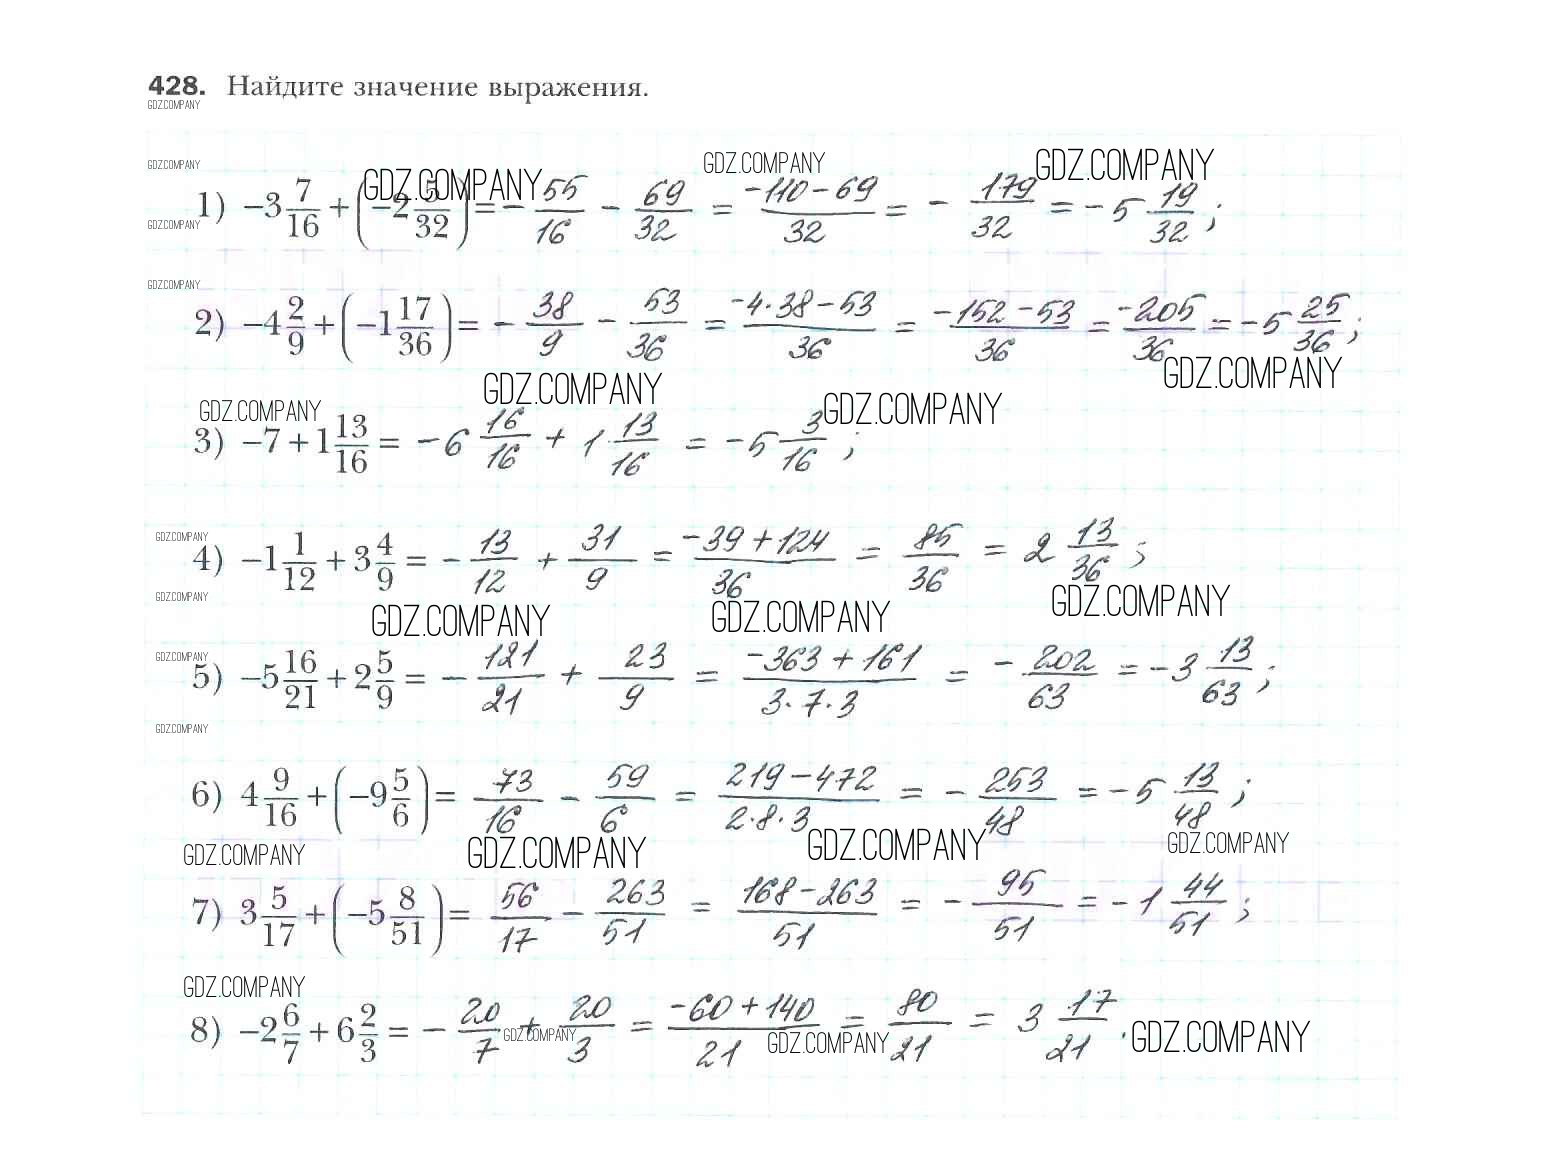 428. Найдите значение выражения.
GDZ.COMPANY
GDZ.COMPANY GDZ.COMPANY GDZ.COMPANY GDZ.COMPANY
1) -3 7/16 + (-2 5/32) = - 55/16 - 69/32 = -110-69/32 = - 179/32 = -5 19/32;
GDZ.COMPANY
GDZ.COMPANY
2) -4 2/9 + (-1 17/36) = - 38/9 - 53/36 = -4·38-53/36 = -152-53/36 = -205/36 = -5 25/36;
GDZ.COMPANY GDZ.COMPANY GDZ.COMPANY GDZ.COMPANY
3) -7 + 1 13/16 = -6 16/16 + 1 13/16 = -5 3/16;
GDZ.COMPANY
4) -1 1/12 + 3 4/9 = - 13/12 + 31/9 = -39+124/36 = 85/36 = 2 13/36;
GDZ.COMPANY GDZ.COMPANY GDZ.COMPANY GDZ.COMPANY
GDZ.COMPANY
5) -5 16/21 + 2 5/9 = - 121/21 + 23/9 = -363+161/3·7·3 = - 202/63 = -3 13/63;
GDZ.COMPANY
6) 4 9/16 + (-9 5/6) = 73/16 - 59/6 = 219-472/2·8·3 = - 253/48 = -5 13/48;
GDZ.COMPANY GDZ.COMPANY GDZ.COMPANY GDZ.COMPANY
7) 3 5/17 + (-5 8/51) = 56/17 - 263/51 = 168-263/51 = - 95/51 = -1 44/51;
GDZ.COMPANY
8) -2 6/7 + 6 2/3 = - 20/7 + 20/3 = -60+140/21 = 80/21 = 3 17/21.
GDZ.COMPANY GDZ.COMPANY GDZ.COMPANY